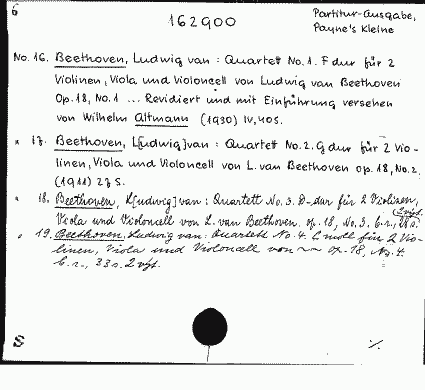 6
162900
Partitur-Ausgabe,
Payne's Kleine
No. 16. Beethoven, Ludwig van : Quartett No. 1. F dur für 2
Violinen, Viola und Violoncell von Ludwig van Beethoven
Op. 18, No. 1 ... Revidiert und mit Einführung versehen
von Wilhelm Altmann (1930) IV, 40 S.
" 17. Beethoven, L[udwig] van : Quartett No. 2. G dur für 2 Vio-
linen, Viola und Violoncell von L. van Beethoven op. 18, No. 2.
(1911) 27 S.
" 18. Beethoven, L[udwig] van : Quartett No. 3. D-dur für 2 Violinen,
Viola und Violoncell von L. van Beethoven. op. 18, No. 3.
" 19. Beethoven, Ludwig van : Quartett No. 4. C moll für 2 Vio-
linen, Viola und Violoncell von op. 18, No. 4.
33 s. 2 vyt.
S